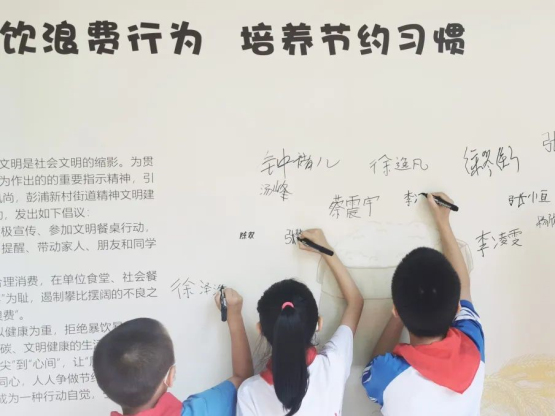 饮浪费行为 培养节约习惯
文明是社会文明的缩影。为贯
为作出的的重要指示精神，引
风尚，彭浦新村街道精神文明建
，发出如下倡议：
极宣传、参加文明餐桌行动，
提醒、带动家人、朋友和同学
合理消费，在单位食堂、社会餐
”为耻，遏制攀比摆阔的不良之
浪费”。
以健康为重，拒绝暴饮暴
碳、文明健康的生活
尖”到“心间”，让“
同心，人人争做节约
成为一种行动自觉，
徐逸凡
蔡震宇
李
张
李凌雯
徐